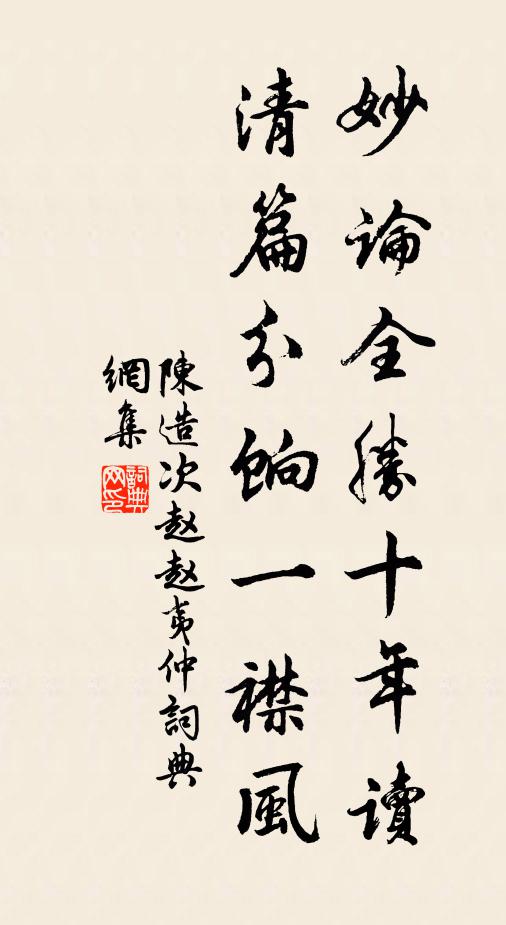 妙論全勝十年讀
清篇分餉一襟風
陳造次赵赵夷仲詞典
網集
詞典
网印